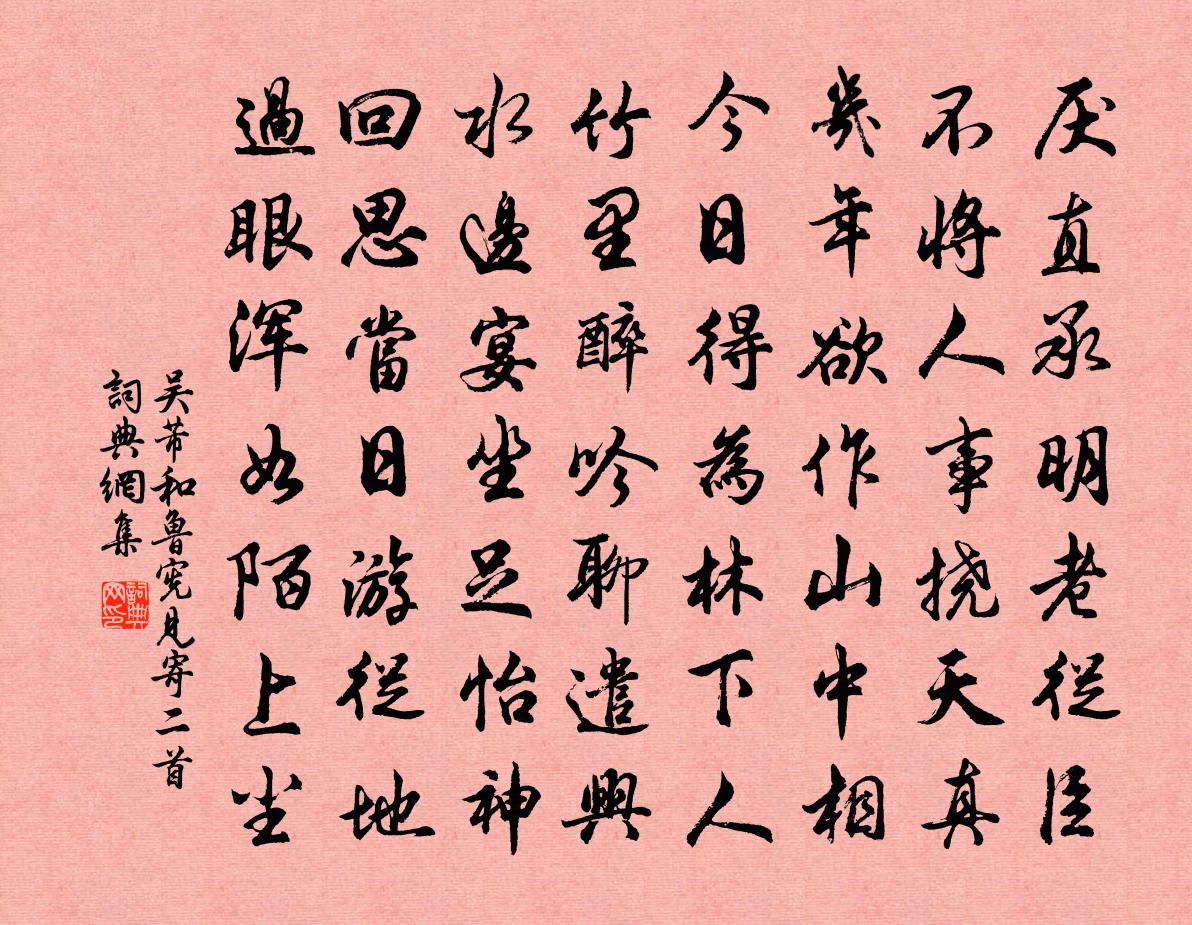 厌直承明老從臣
不將人事挠天真
幾年欲作山中相
今日得為林下人
竹里醉吟聊遣興
水邊宴坐足怡神
回思當日游從地
過眼浑如陌上尘
吴芾和鲁宪見寄二首
詞典網集
詞典网印